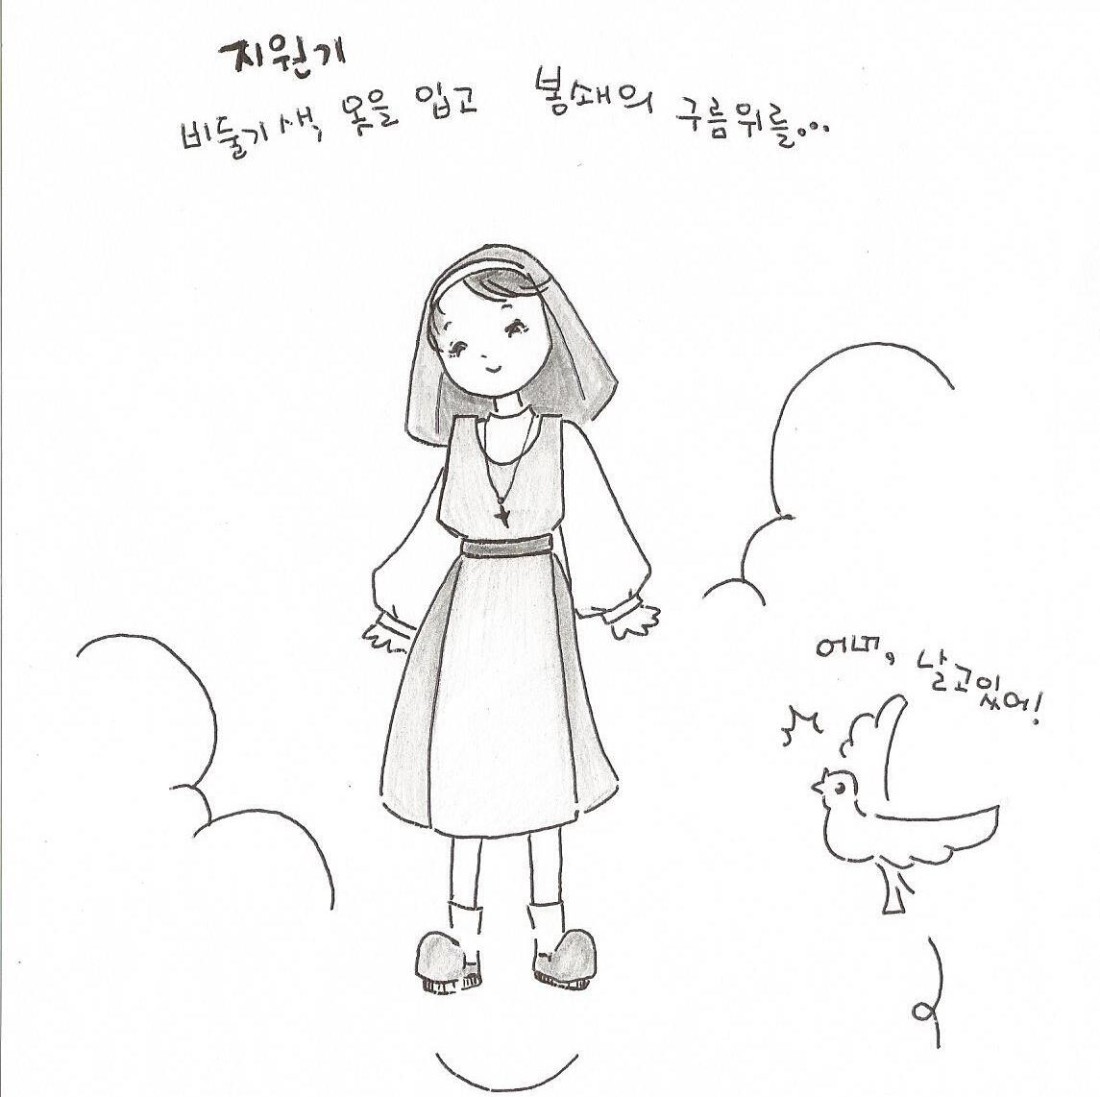 지원기
비둘기색 옷을 입고 봉쇄의 구름위를...
어머, 날고있어!